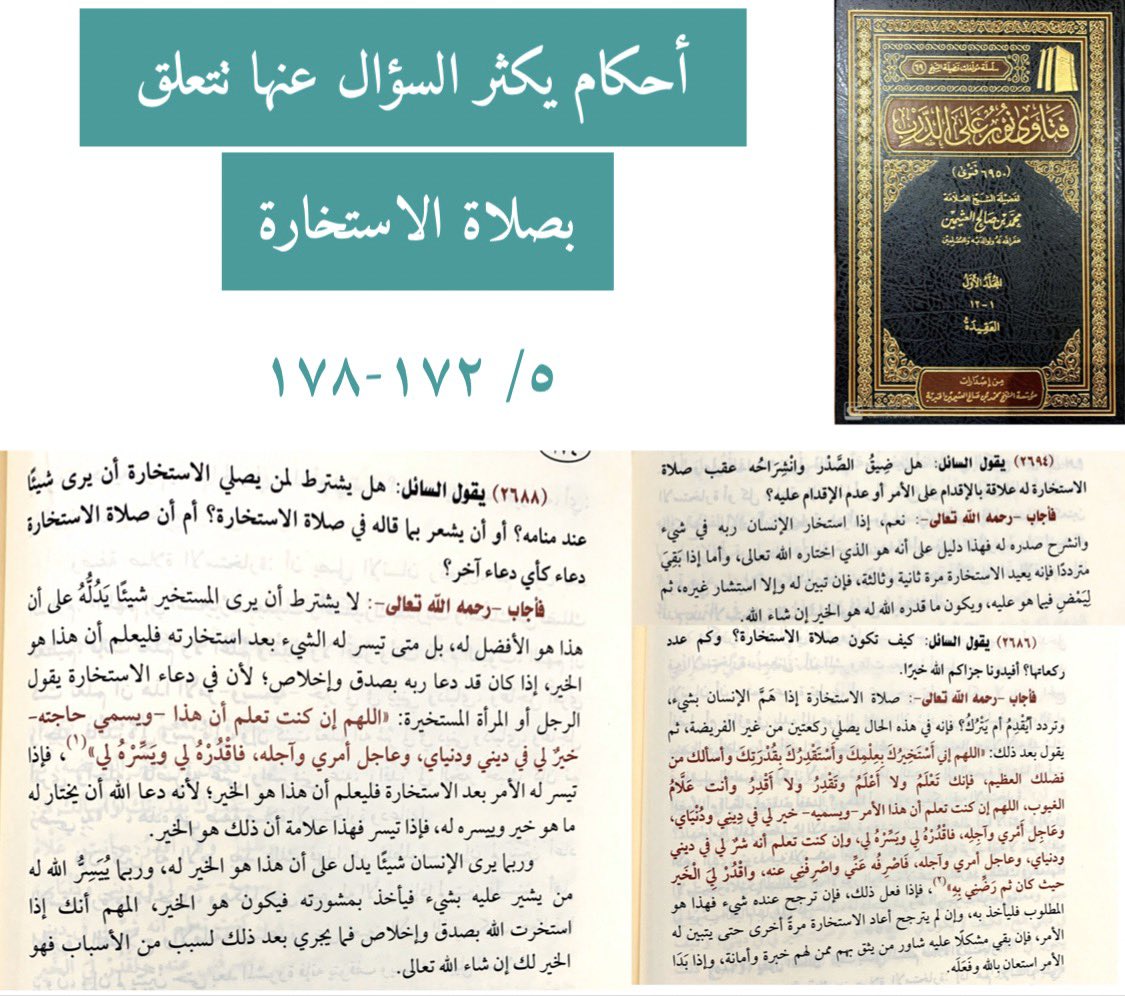 أحكام يكثر السؤال عنها تتعلق
بصلاة الاستخارة
٥/ ١٧٢-١٧٨
فتاوى نور على الدرب
(٦٩٥٠ فتوى)
لفضيلة الشيخ العلامة
محمد بن صالح العثيمين
غفر الله له ولوالديه وللمسلمين
المجلد الأول
١-١٢
العقيدة
من إصدارات
مؤسسة الشيخ محمد بن صالح العثيمين الخيرية
(٢٦٩٤) يقول السائل: هل ضِيقُ الصَّدْرِ وَانْشِرَاحُه عقب صلاة
الاستخارة له علاقة بالإقدام على الأمر أو عدم الإقدام عليه؟
فأجاب -رحمه الله تعالى-: نعم، إذا استخار الإنسان ربه في شيء
وانشرح صدره له فهذا دليل على أنه هو الذي اختاره الله تعالى، وأما إذا بَقِيَ
مترددًا فإنه يعيد الاستخارة مرة ثانية وثالثة، فإن تبين له وإلا استشار غيره، ثم
لِيَمْضِ فيما هو عليه، ويكون ما قدره الله له هو الخير إن شاء الله.
(٢٦٨٦) يقول السائل: كيف تكون صلاة الاستخارة؟ وكم عدد
ركعاتها؟ أفيدونا جزاكم الله خيرًا.
فأجاب -رحمه الله تعالى-: صلاة الاستخارة إذا هَمَّ الإنسان بشيء،
وتردد أَيُقْدِمُ أم يَتْرُكُ؟ فإنه في هذه الحال يصلي ركعتين من غير الفريضة، ثم
يقول بعد ذلك: «اللهم إني أَسْتَخِيرُكَ بِعِلْمِكَ وَأَسْتَقْدِرُكَ بِقُدْرَتِكَ وأسألك من
فضلك العظيم، فإنك تَعْلَمُ ولا أَعْلَمُ وتَقْدِرُ ولا أَقْدِرُ وأنت عَلَّامُ
الغيوب، اللهم إن كنت تعلم أن هذا الأمر -ويسميه- خير لي في ديني ودُنْيَاي،
وعَاجِلِ أمري وآجِلِه، فاقْدُرْهُ لي ويَسِّرْهُ لي، وإن كنت تعلم أنه شرٌ لي في ديني
ودنياي، وعاجل أمري وآجله، فَاصْرِفْه عَنِّي واصرِفْنِي عنه، واقْدُرْ لِيَ الْخَيْرَ
حيث كان ثم رَضِّنِي بِهِ»(١)، فإذا فعل ذلك، فإن ترجح عنده شيء فهذا هو
المطلوب فليأخذ به، وإن لم يترجح أعاد الاستخارة مرةً أخرى حتى يتبين له
الأمر، فإن بقي مشكلًا عليه شاور من يثق بهم ممن لهم خبرة وأمانة، وإذا بَدَا
الأمر استعان بالله وفَعَلَه.
(٢٦٨٨) يقول السائل: هل يشترط لمن يصلي الاستخارة أن يرى شيئًا
عند منامه؟ أو أن يشعر بما قاله في صلاة الاستخارة؟ أم أن صلاة الاستخارة
دعاء كأي دعاء آخر؟
فأجاب -رحمه الله تعالى-: لا يشترط أن يرى المستخير شيئًا يَدُلُّهُ على أن
هذا هو الأفضل له، بل متى تيسر له الشيء بعد استخارته فليعلم أن هذا هو
الخير، إذا كان قد دعا ربه بصدق وإخلاص؛ لأن في دعاء الاستخارة يقول
الرجل أو المرأة المستخيرة: «اللهم إن كنت تعلم أن هذا -ويسمي حاجته-
خيرٌ لي في ديني ودنياي، وعاجل أمري وآجله، فاقْدُرْهُ لي ويَسِّرْهُ لي»(١)، فإذا
تيسر له الأمر بعد الاستخارة فليعلم أن هذا هو الخير؛ لأنه دعا الله أن يختار له
ما هو خير وييسره له، فإذا تيسر فهذا علامة أن ذلك هو الخير.
وربما يرى الإنسان شيئًا يدل على أن هذا هو الخير له، وربما يُيَسِّرُ الله له
من يشير عليه بشيء فيأخذ بمشورته فيكون هو الخير، المهم أنك إذا
استخرت الله بصدق وإخلاص فما يجري بعد ذلك لسبب من الأسباب فهو
الخير لك إن شاء الله تعالى.